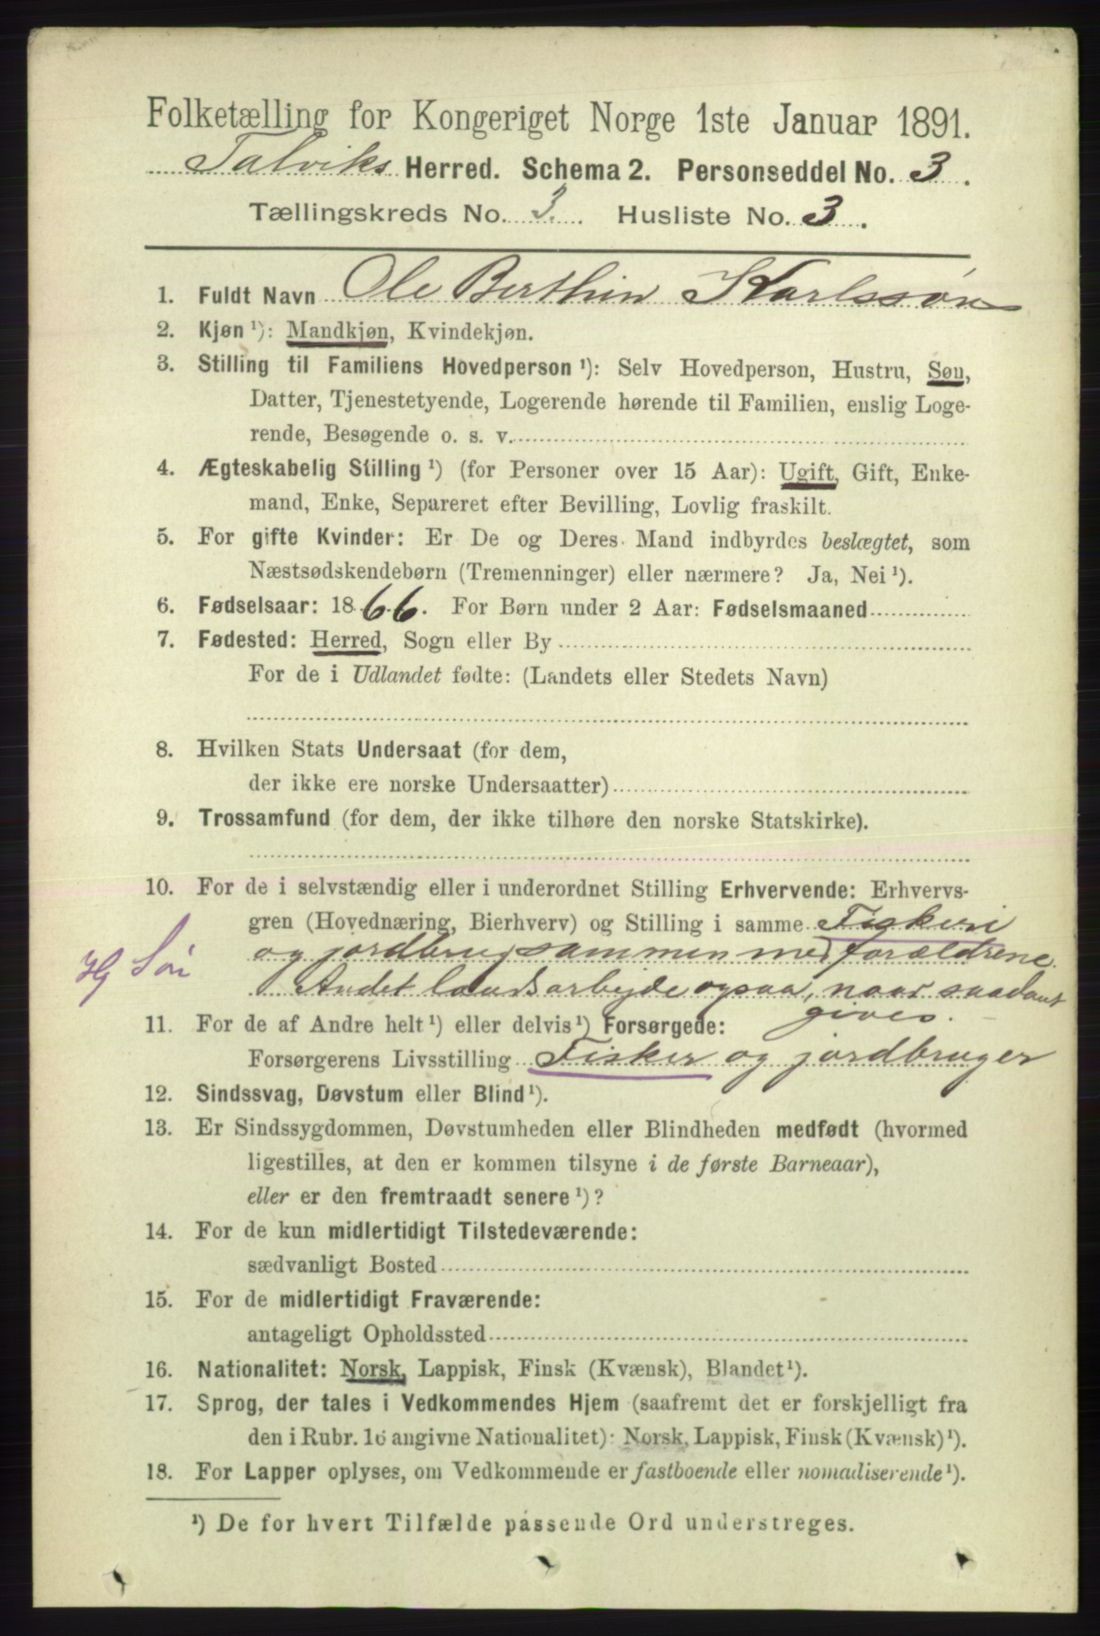 Folketælling for Kongeriget Norge 1ste Januar 1891.
Talviks Herred. Schema 2. Personseddel No. 3.
Tællingskreds No. 3. Husliste No. 3.
1. Fuldt Navn Ole Berthin Karlssøn
2. Kjøn ¹): Mandkjøn, Kvindekjøn.
3. Stilling til Familiens Hovedperson ¹): Selv Hovedperson, Hustru, Søn,
Datter, Tjenestetyende, Logerende hørende til Familien, enslig Loge-
rende, Besøgende o. s. v.
4. Ægteskabelig Stilling ¹) (for Personer over 15 Aar): Ugift, Gift, Enke-
mand, Enke, Separeret efter Bevilling, Lovlig fraskilt.
5. For gifte Kvinder: Er De og Deres Mand indbyrdes beslægtet, som
Næstsødskendebørn (Tremenninger) eller nærmere? Ja, Nei ¹).
6. Fødselsaar: 1866. For Børn under 2 Aar: Fødselsmaaned
7. Fødested: Herred, Sogn eller By
For de i Udlandet fødte: (Landets eller Stedets Navn)
8. Hvilken Stats Undersaat (for dem,
der ikke ere norske Undersaatter)
9. Trossamfund (for dem, der ikke tilhøre den norske Statskirke).
10. For de i selvstændig eller i underordnet Stilling Erhvervende: Erhvervs-
gren (Hovednæring, Bierhverv) og Stilling i samme Fiskeri
og jordbrug sammen med forældrene.
Hg Søn
Andet landsarbejde ogsaa, naar saadant
gives.
11. For de af Andre helt ¹) eller delvis ¹) Forsørgede:
Forsørgerens Livsstilling Fisker og jordbruger
12. Sindssvag, Døvstum eller Blind ¹).
13. Er Sindssygdommen, Døvstumheden eller Blindheden medfødt (hvormed
ligestilles, at den er kommen tilsyne i de første Barneaar),
eller er den fremtraadt senere ¹)?
14. For de kun midlertidigt Tilstedeværende:
sædvanligt Bosted
15. For de midlertidigt Fraværende:
antageligt Opholdssted
16. Nationalitet: Norsk, Lappisk, Finsk (Kvænsk), Blandet ¹).
17. Sprog, der tales i Vedkommendes Hjem (saafremt det er forskjelligt fra
den i Rubr. 16 angivne Nationalitet): Norsk, Lappisk, Finsk (Kvænsk) ¹).
18. For Lapper oplyses, om Vedkommende er fastboende eller nomadiserende ¹).
¹) De for hvert Tilfælde passende Ord understreges.